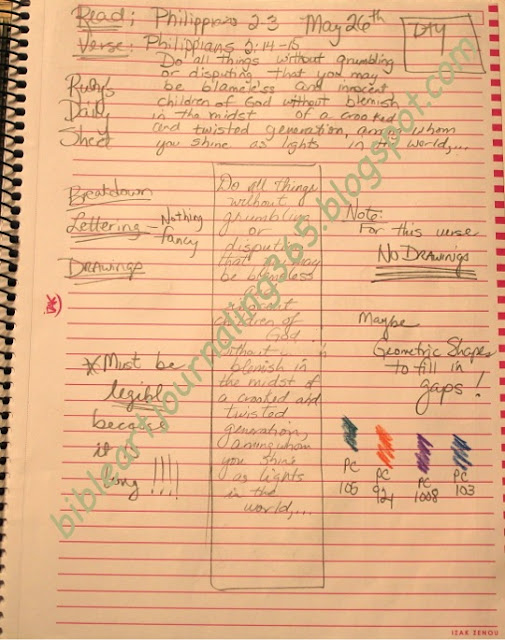 Read; Philippians 2-3 May 26th
DTY
Verse: Philippians 2:14-15
Do all things without grumbling
or disputing that you may
be blameless and innocent,
children of God without blemish
in the midst of a crooked
and twisted generation, among whom
you shine as lights in the world,...
Ruby's
Daily
Sheet
Breakdown
Lettering - Nothing
fancy
Drawings
*Must be
legible
because
it is
long!!!!
Do all things
without
grumbling
or
disputing
that you may
be blameless
and
innocent
children of
God
without
blemish in
the midst of
a crooked and
twisted
generation,
among whom
you shine
as lights
in the
world,...
Note:
For this verse
No Drawings
Maybe
Geometric Shapes
to fill in
gaps!
PC
105
PC
924
PC
1008
PC
103
bibleartjournaling365.blogspot.com
IZAK ZENOU